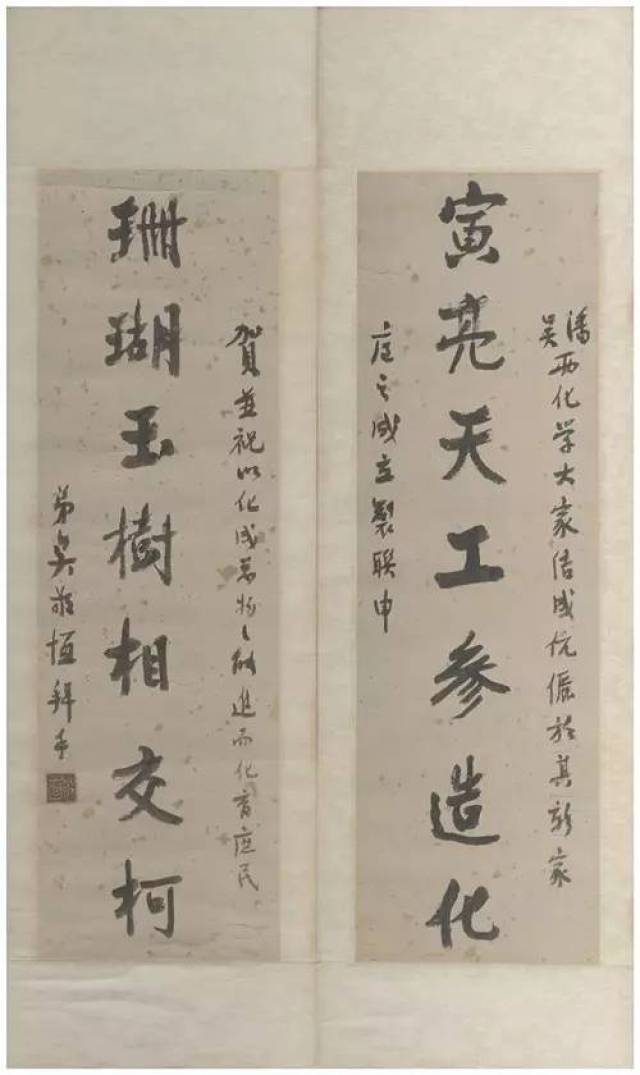 潘吳两化学大家结成伉儷於其新家
寅亮天工参造化
庭之成立製联申
賀並祝以化成萬物之能進而化育庶民
珊瑚玉樹相交柯
弟吳敬恒拜手